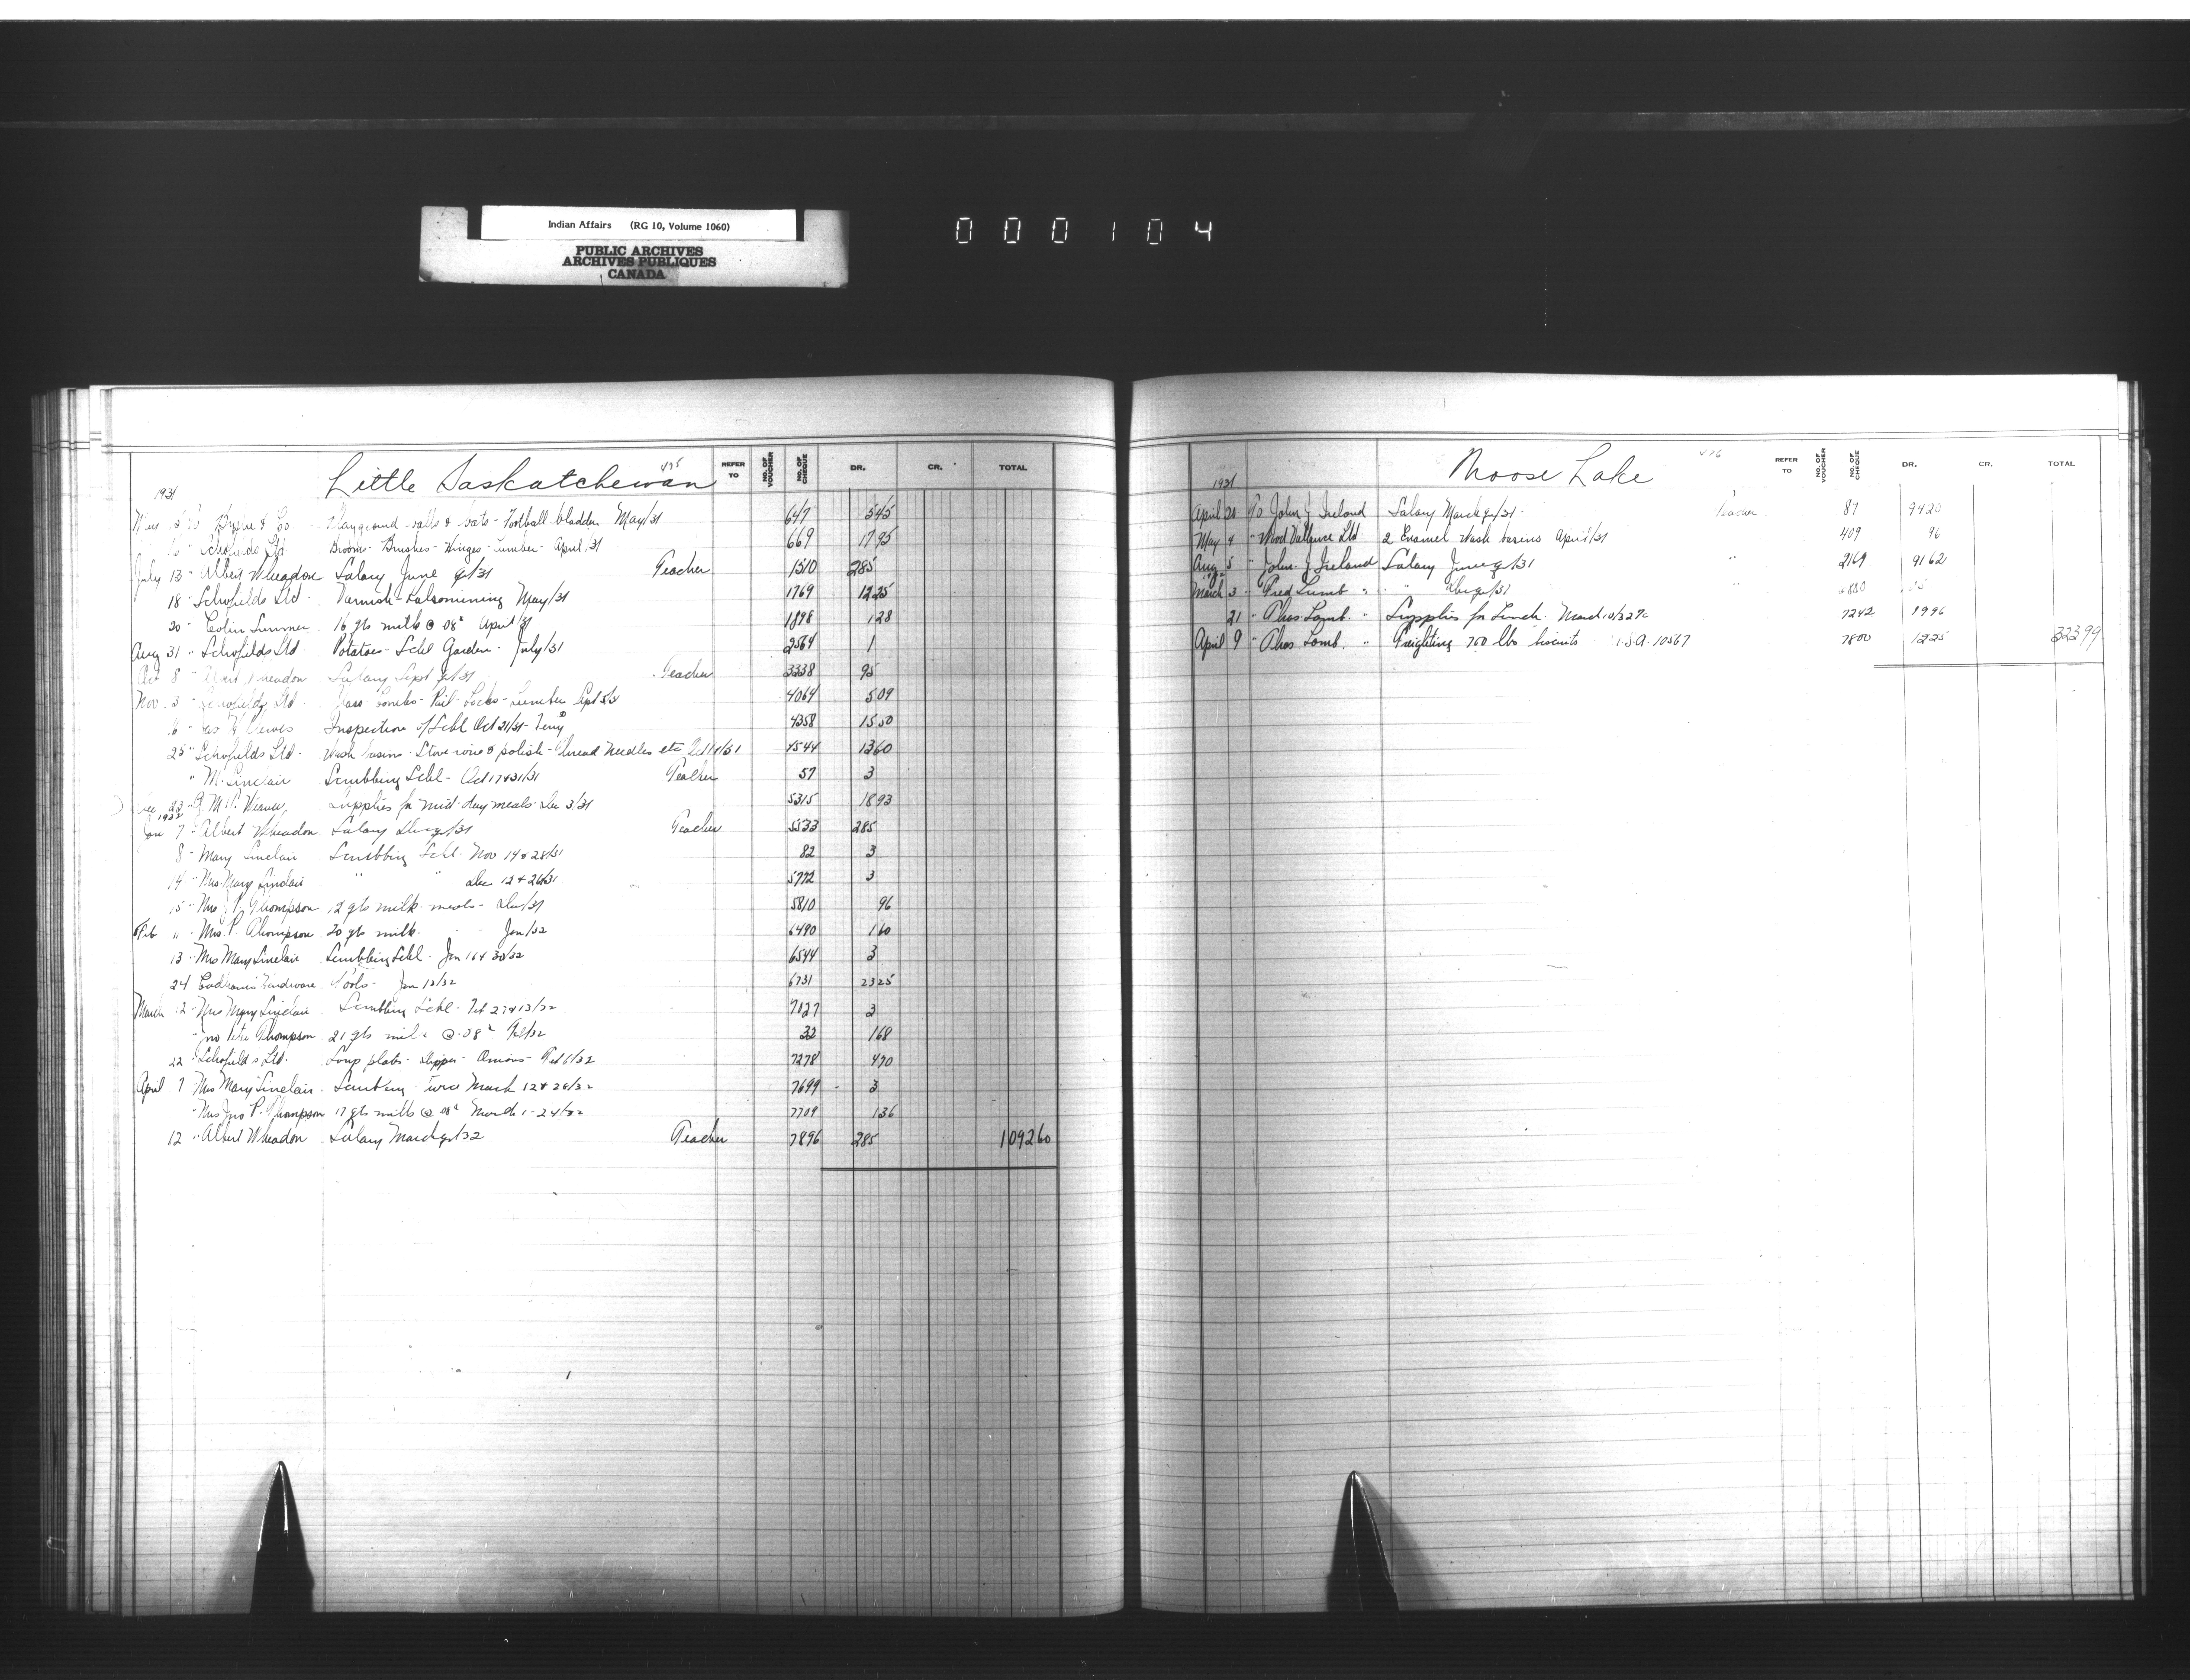 Indian Affairs (RG 10, Volume 1060)
PUBLIC ARCHIVES
ARCHIVES PUBLIQUES
CANADA
000104
Little Saskatchewan 475
REFER TO NO. OF VOUCHER NO. OF CHEQUE DR. CR. TOTAL
1931
& Co. Playground balls & bats - Football bladder May/31 647 5 45
Schofields Ltd. Brooms - Brushes - Hinges - Lumber - April/31 669 17 95
July 13 " Albert Wheadon Salary June qr/31 Teacher 1510 285
18 " Schofields Ltd. Varnish - Kalsomining May/31 1769 12 25
20 " Colin Sumner 16 qts milk @ 08¢ April/31 1898 1 28
Aug 31 " Schofields Ltd Potatoes - Schl Garden - July/31 2564 1
Oct 8 " Albert Wheadon Salary Sept qr/31 Teacher 3338 95
Nov. 3 " Schofields Ltd - Combs - Pail - Locks - Lumber Sept 4064 5 09
6 " Inspection of Schl Oct 21/31 - 4358 15 50
25 " Schofields Ltd. Wash basins - Stove & polish - Thread - Needles etc 4544 13 60
" M. Sinclair Scrubbing Schl - Oct 17 & 31/31 Teacher 57 3
Dec 23 - Supplies for mid-day meals - Dec 3/31 5315 18 93
1932
Jan 7 - Albert Wheadon Salary Dec qr/31 Teacher 5533 285
8 - Mary Sinclair Scrubbing Schl - Nov 14 & 28/31 82 3
14 " Mrs Mary Sinclair " " Dec 12 & 26/31 5772 3
15 " Mrs P. Thompson 12 qts milk - meals - Dec/31 5810 96
Feb " Mrs P. Thompson 20 qts milk - - Jan/32 6490 1 60
13 " Mrs Mary Sinclair Scrubbing Schl - Jan 16 & 30/32 6544 3
24 Hardware Tools - Jan 13/32 6731 23 25
March 12 - Mrs Mary Sinclair Scrubbing Schl - Feb 27 & 13/32 7027 3
" Thompson 21 qts milk @ .08¢ Feb/32 32 1 68
22 " Schofields Ltd. Soup plates - Dipper - Onions - Feb 6/32 7278 4 70
April 7 Mrs Mary Sinclair Scrubbing twice March 12 & 26/32 7699 3
" Mrs Jno P. Thompson 17 qts milk @ 08¢ March 1-24/32 7709 1 36
12 " Albert Wheadon Salary March qr/32 Teacher 7896 285 1092 60
Moose Lake 476
REFER TO NO. OF VOUCHER NO. OF CHEQUE DR. CR. TOTAL
1931
April 20 To John J Ireland Salary March qr/31 - Teacher 87 94 20
May 4 " Wood Vallance Ltd 2 Enamel wash basins April/31 409 96
Aug 5 " John J. Ireland Salary June qr/31 " 2169 91 62
March 3 " Fred Lumb " " Dec qr/31 "
21 " Thos. Lamb. " Supplies for Lunch - March 10/32 7242 19 96
April 9 " Thos Lamb. " Freighting 750 lbs biscuits - 10567 7800 12 25 323 99